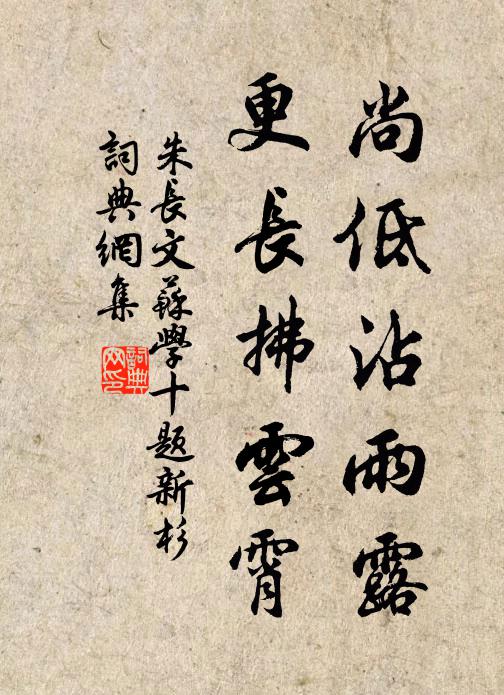 尚低沾雨露
更長拂雲霄
朱長文蘇學十題新杉
詞典網集
詞典网印